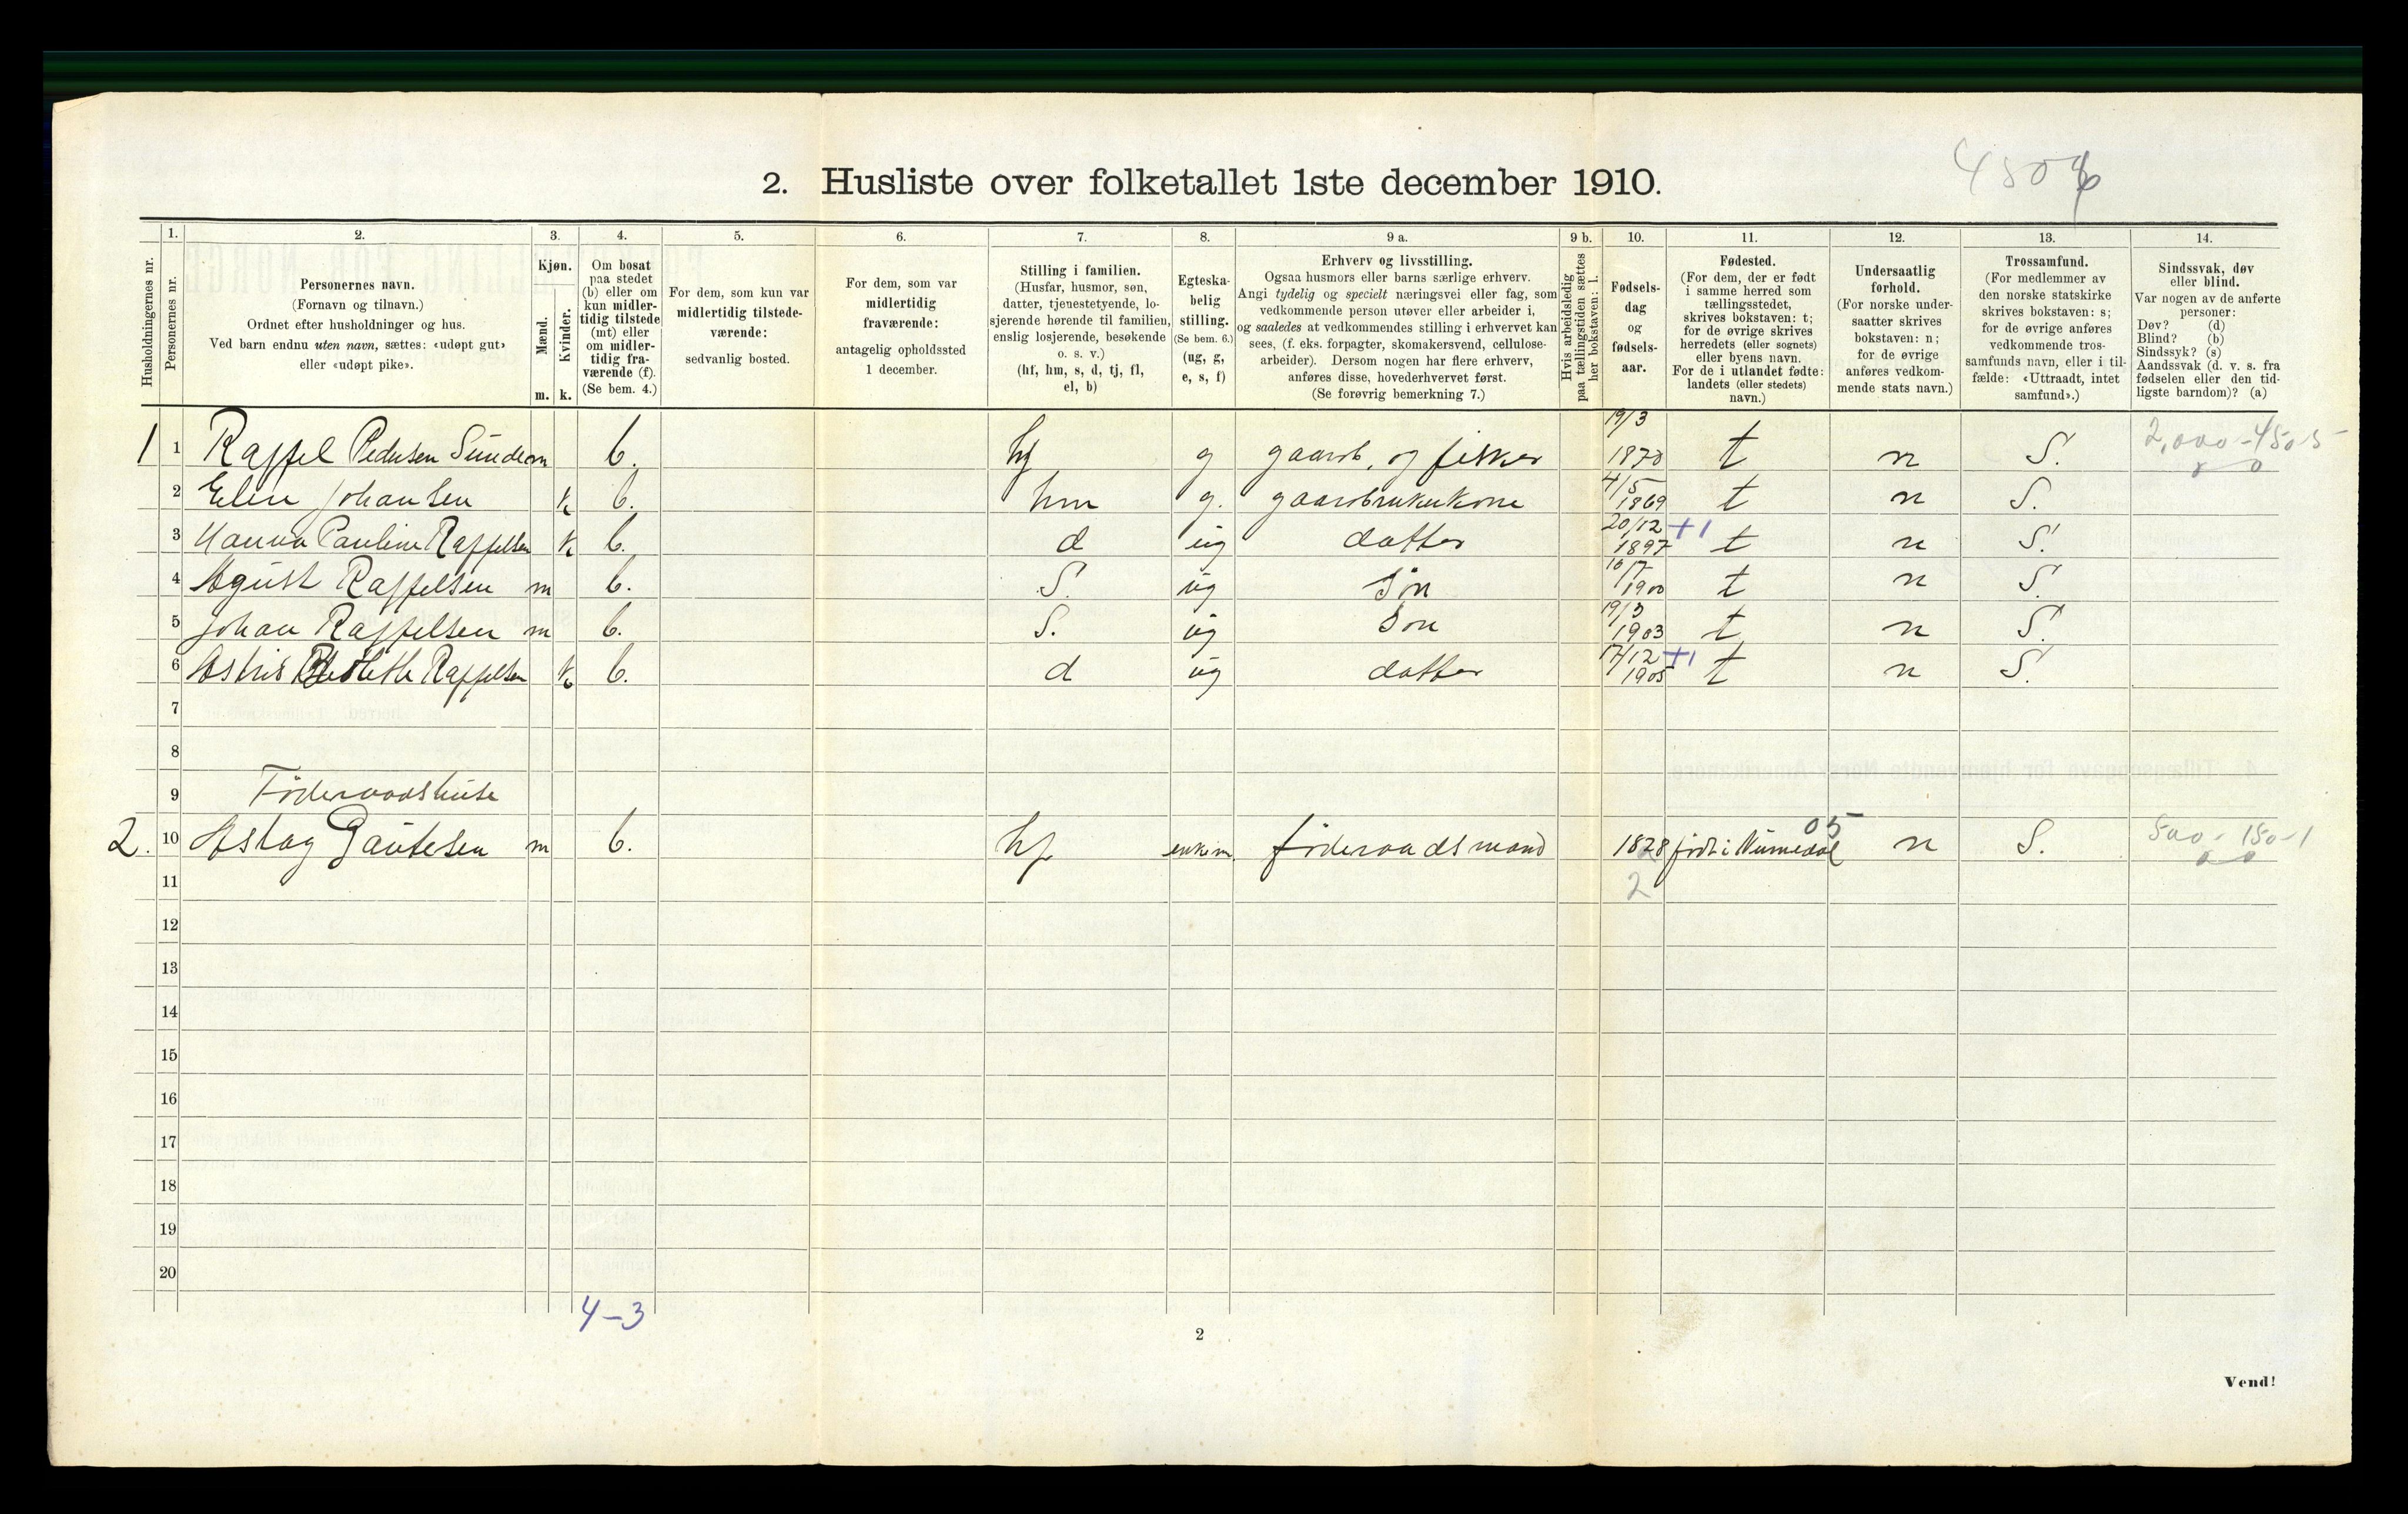 2. Husliste over folketallet 1ste december 1910.
Husholdningernes nr.
1.
Personernes nr.
2.
Personernes navn.
(Fornavn og tilnavn.)
Ordnet efter husholdninger og hus.
Ved barn endnu uten navn, sættes: «udøpt gut»
eller «udøpt pike».
3.
Kjøn.
Mænd.
Kvinder.
m. k.
4.
Om bosat
paa stedet
(b) eller om
kun midler-
tidig tilstede
(mt) eller
om midler-
tidig fra-
værende (f).
(Se bem. 4.)
5.
For dem, som kun var
midlertidig tilstede-
værende:
sedvanlig bosted.
6.
For dem, som var
midlertidig
fraværende:
antagelig opholdssted
1 december.
7.
Stilling i familien.
(Husfar, husmor, søn,
datter, tjenestetyende, lo-
sjerende hørende til familien,
enslig losjerende, besøkende
o. s. v.)
(hf, hm, s, d, tj, fl,
el, b)
8.
Egteska-
belig
stilling.
(Se bem. 6.)
(ug, g,
e, s, f)
9 a.
Erhverv og livsstilling.
Ogsaa husmors eller barns særlige erhverv.
Angi tydelig og specielt næringsvei eller fag, som
vedkommende person utøver eller arbeider i,
og saaledes at vedkommendes stilling i erhvervet kan
sees, (f. eks. forpagter, skomakersvend, cellulose-
arbeider). Dersom nogen har flere erhverv,
anføres disse, hovederhvervet først.
(Se forøvrig bemerkning 7.)
9 b.
Hvis arbeidsledig
paa tællingstiden sættes
her bokstaven: l.
10.
Fødsels-
dag
og
fødsels-
aar.
11.
Fødested.
(For dem, der er født
i samme herred som
tællingsstedet,
skrives bokstaven: t;
for de øvrige skrives
herredets (eller sognets)
eller byens navn.
For de i utlandet fødte:
landets (eller stedets)
navn.)
12.
Undersaatlig
forhold.
(For norske under-
saatter skrives
bokstaven: n;
for de øvrige
anføres vedkom-
mende stats navn.)
13.
Trossamfund.
(For medlemmer av
den norske statskirke
skrives bokstaven: s;
for de øvrige anføres
vedkommende tros-
samfunds navn, eller i til-
fælde: «Uttraadt, intet
samfund».)
14.
Sindssvak, døv
eller blind.
Var nogen av de anførte
personer:
Døv? (d)
Blind? (b)
Sindssyk? (s)
Aandssvak (d. v. s. fra
fødselen eller den tid-
ligste barndom)? (a)
1 1 Raffel Pedersen Sunde m b. hf g gaarb. og fisker 19/3 1870 t n S. 2,000-450-5
2 Elen Johansen k b. hm g. gaardbrukerkone 4/5 1869 t n S.
3 Hanna Pauline Raffelsen k b. d ug datter 20/12 1897 +1 t n S.
4 Agust Raffelsen m b. S. ug Søn 1900 t n S.
5 Johan Raffelsen m b. S. ug Søn 19/3 1903 t n S.
6 Astrid Raffelsen k b. d ug datter 17/12 1905 +1 t n S.
7
8
9 Føderaadshuse
2. 10 Aslag Gautesen m b. hf enkem. føderaadsmand 1828 født i Numedal 05 n S. 500-150-1
11 2
12
13
14
15
16
17
18
19
20
4-3
2
Vend!